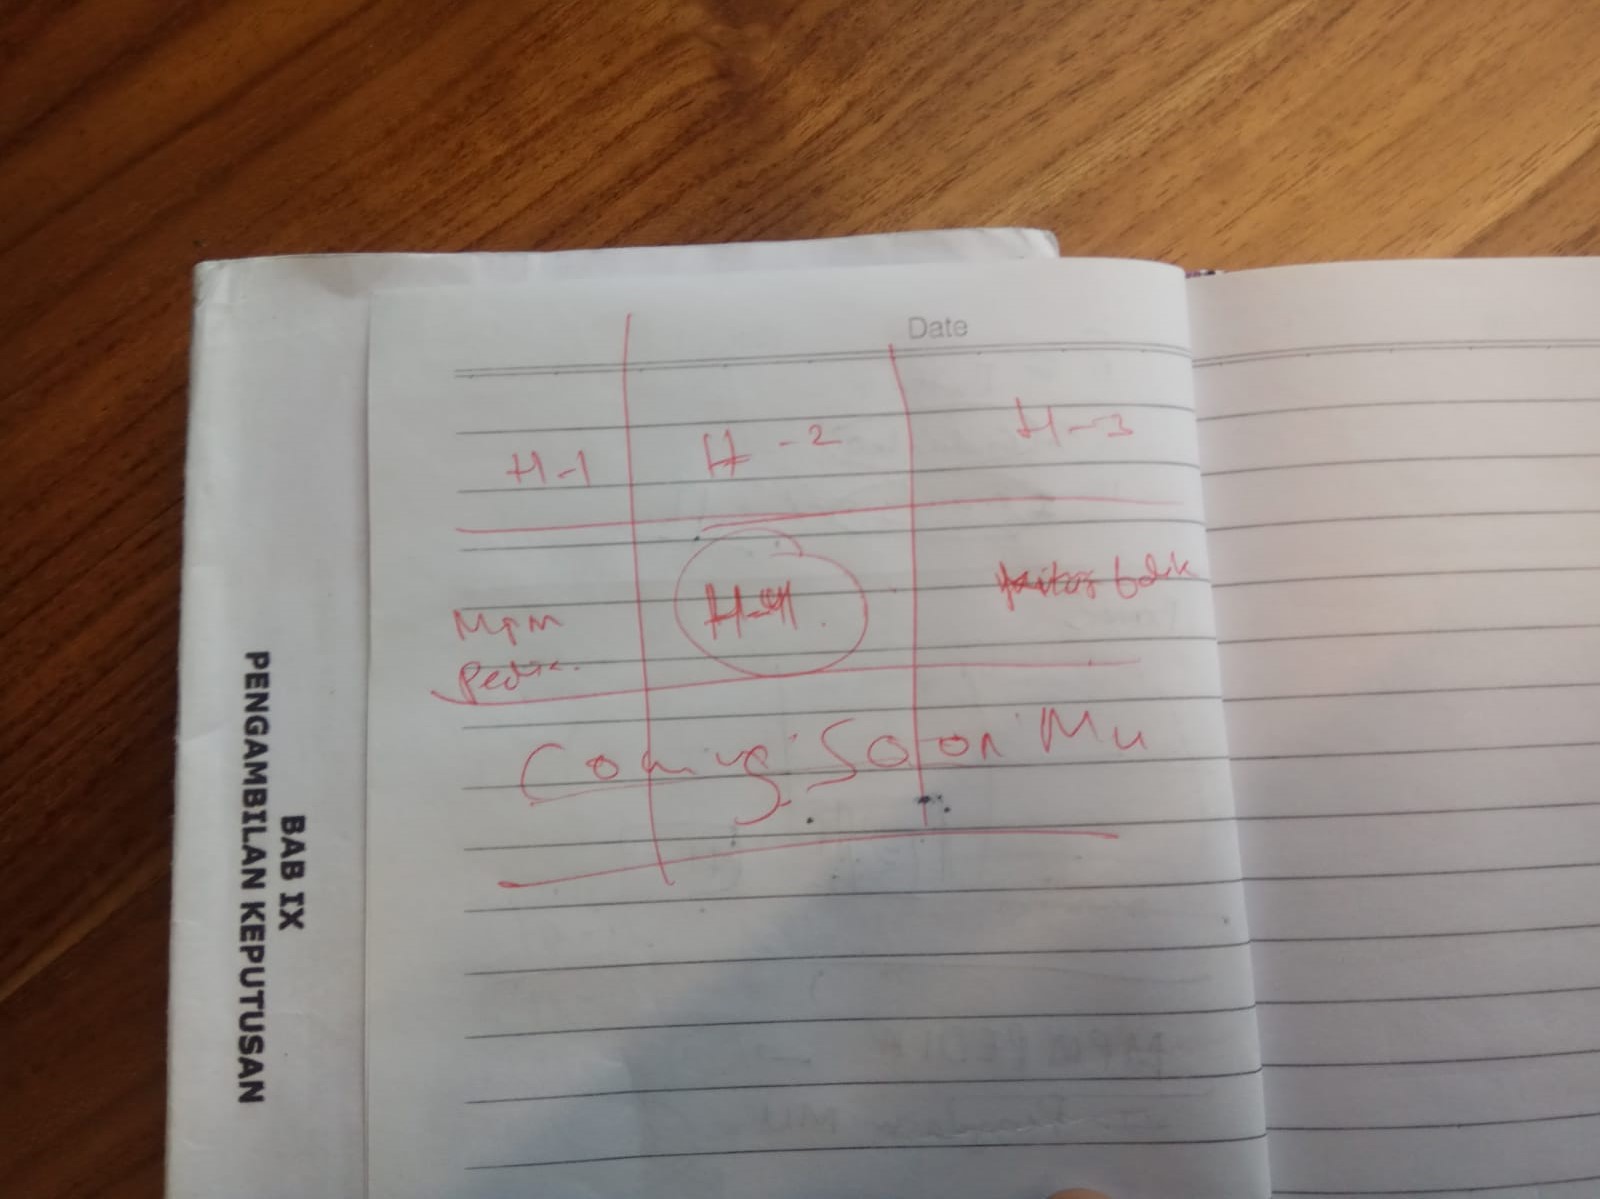 BAB IX
PENGAMBILAN KEPUTUSAN
Date
H-1 H-2 H-3
MPM H-4 balik
Coming Soon Mu